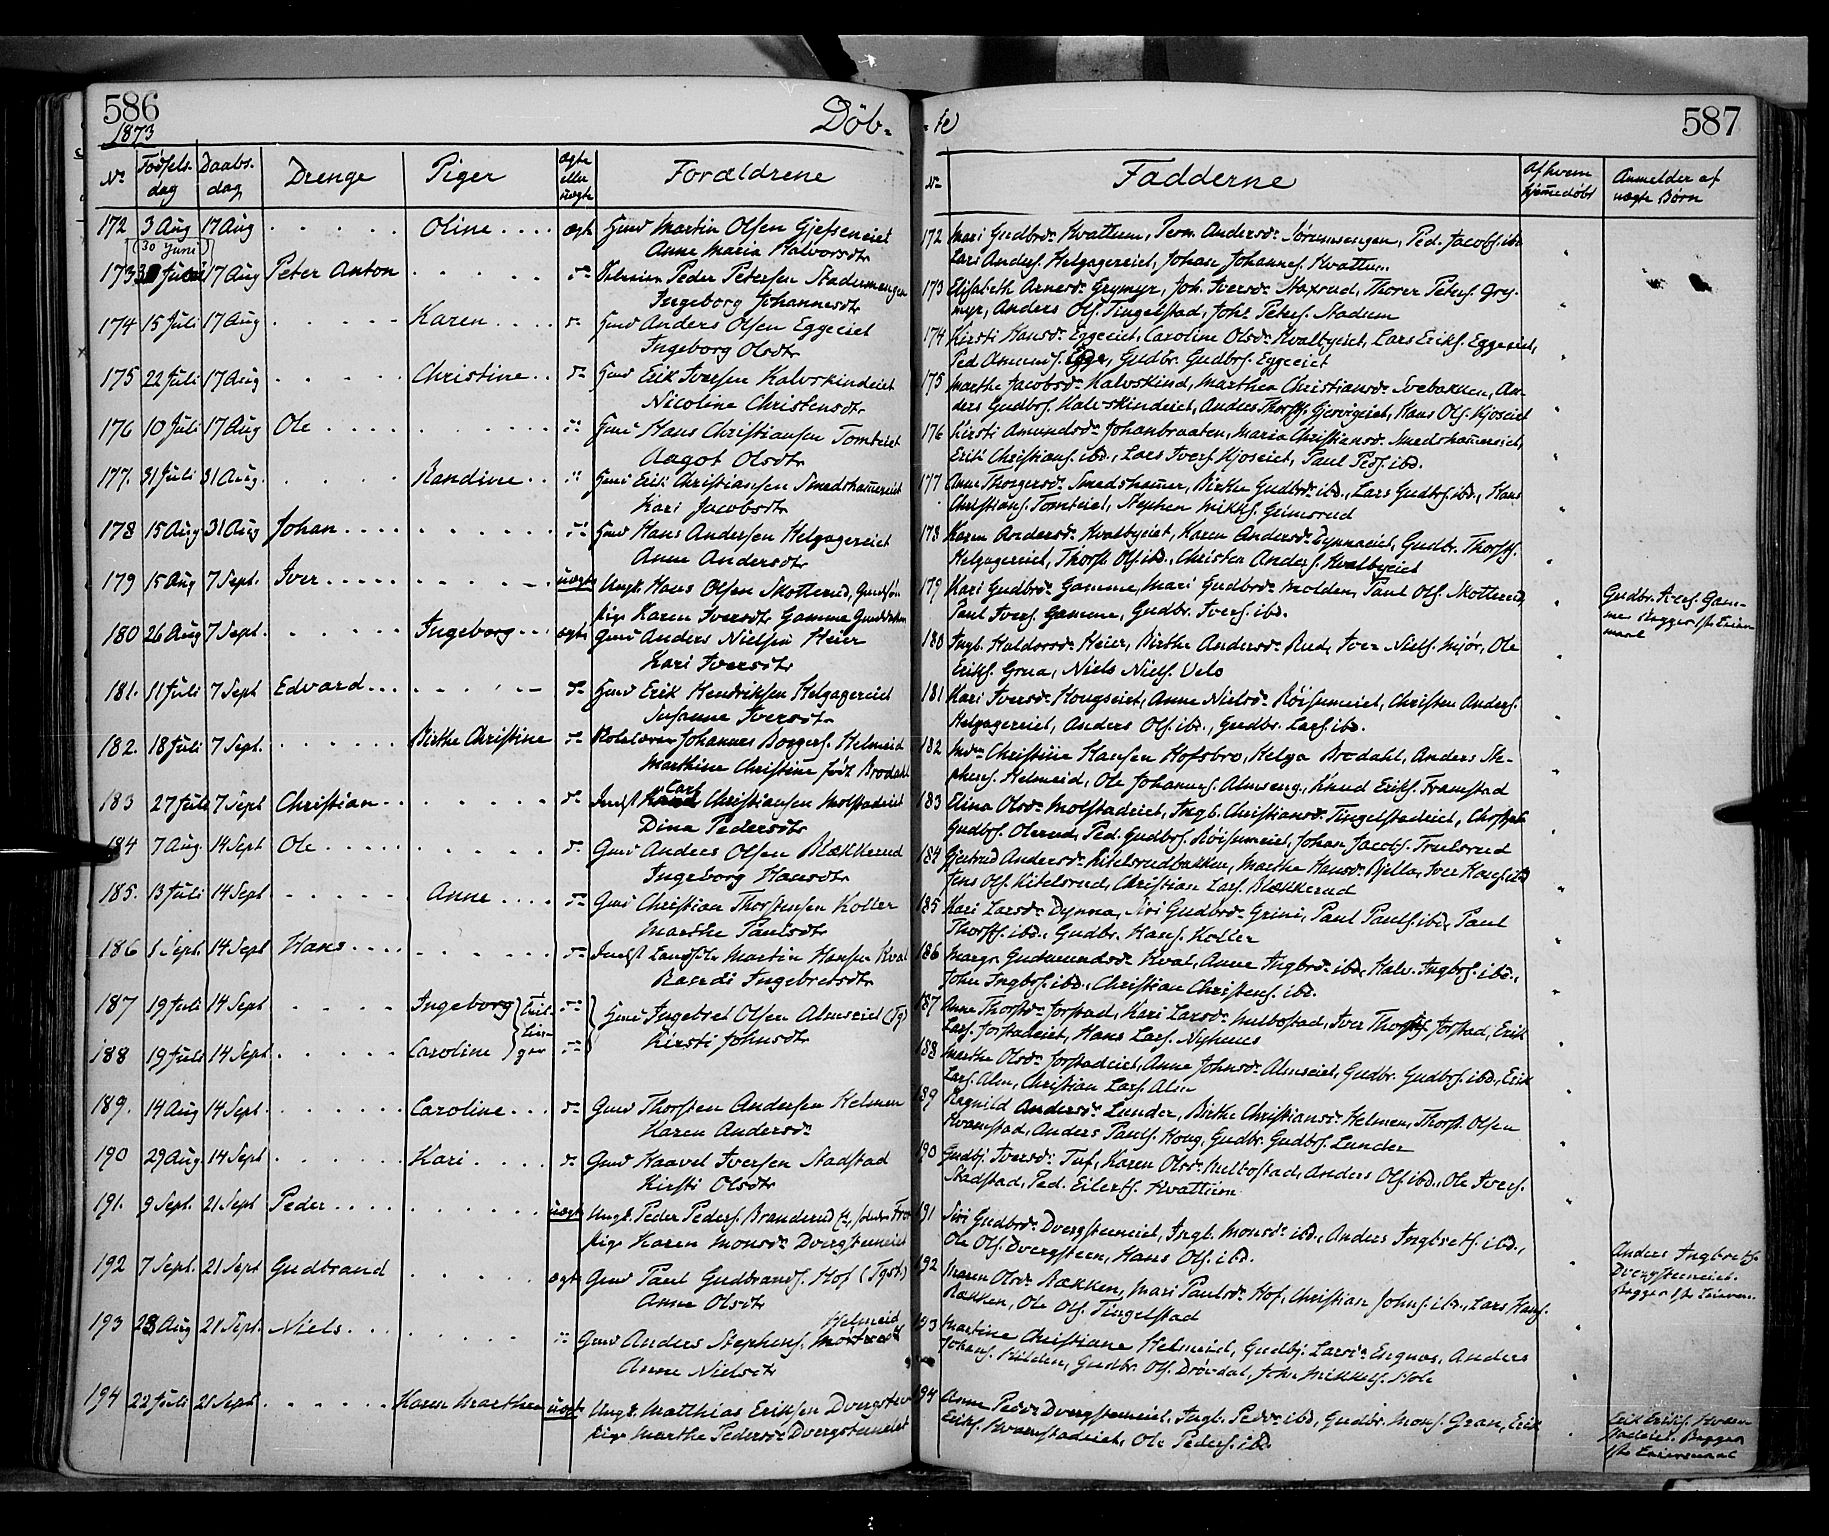 586
1873
Döb-
No Födsels- dag Daabs- dag Drenge Piger ægte eller uægte Forældrene
172 3 Aug 17 Aug Oline ægt Gmd Martin Olsen Gjefseneiet
Anne Maria Halvorsdtr
(30 Juni)
173 Juli 17 Aug Peter Anton do Peder Petersen
Ingeborg Johannesdtr
174 15 Juli 17 Aug Karen do Gmd Anders Olsen Eggeeiet
Ingeborg Olsdtr
175 22 Juli 17 Aug Christine do Gmd Erik Iversen Kalvskindeiet
Nicoline Christensdtr
176 10 Juli 17 Aug Ole do Gmd Hans Christiansen Tomteiet
Aagot Olsdtr
177. 31 Juli 31 Aug. Randine do Gmd Erik Christiansen Smedshammereiet
Kari Jacobsdtr
178 15 Aug 31 Aug Johan do Gmd Hans Andersen Helgagereiet
Anne Andersdtr
179 15 Aug 7 Sept. Iver uægte Ungk. Hans Olsen Skotterud, Gmdsön
Pige Karen Iversdtr Gamme
180 26 Aug 7 Sept. Ingeborg ægte Gmd Anders Nielsen Heier
Kari Iversdtr
181. 11 Juli 7 Sept Edvard do Gmd Erik Hendriksen Helgagereiet
Susanne Iversdtr
182. 18 Juli 7 Sept. Birthe Christine do Johannes Borgers. Helmeid
Marthine Christine födt Brodahl
183 27 Juli 7 Sept Christian do Indst Carl Christiansen Molstadeiet
Dina Pedersdtr
184 7 Aug 14 Sept Ole do Gmd Anders Olsen Blækkerud
Ingeborg Hansdtr
185. 13 Juli 14 Sept Anne do Gmd Christian Thorstensen Koller
Marthe Paulsdtr
186 1 Sept. 14 Sept Hans do Indst Martin Hansen Kval
Randi Ingebretsdtr
187 19 Juli 14 Sept Ingeborg Tvil- do Gmd Ingebret Olsen Almseiet (Tg)
188 19 Juli 14 Sept Caroline lin- ger do Kirsti Johnsdtr
189. 14 Aug 14 Sept Caroline do Gmd Thorsten Andersen Helmen
Karen Andersdr
190 29 Aug 14 Sept Kari do Gmd Kaavel Iversen Stadstad
Kirsti Olsdtr
191. 9 Sept. 21 Sept Peder uægte Ungk. Peder Peders. Branderud
Pige Karen Monsdr Dvergsteneiet
192 7 Sept. 21 Sept Gudbrand ægte Gmd Paul Gudbrands. Hof (Tgst.)
Anne Olsdtr
Helmeid
193 23 Aug 21 Sept. Niels do Gmd Anders Stephens.
Anne Nielsdtr
194 22 Juli 21 Sept. Karen Marthea uægt Ungk. Matthias Eriksen Dvergsten
Pige Marthe Pedersdr Dvergsteneiet
587
te
No Fadderne Af hvem hjemmedöbt Anmelder af uægte Börn
172 Mari Gudbrdr Kvattum, Pern. Andersdr Sörumsengen, Ped. Jacobs. ibd
Lars Anders. Helgagereiet, Johan Johannes. Kvattum
173 Elisabeth Arnesdr Grymyr, Joh. Iversdr Naxrud, Thorer Peters. Gry-
myr, Anders Ols. Tingelstad, Johs Peters. Stadum
174 Kirsti Hansdr Eggeeiet, Caroline Olsdr Kvalbyeiet, Lars Eriks. Eggeeiet,
Ped Amunds. Egge, Gudbr. Gudbrs. Eggeeiet
175 Marthe Jacobsdr Kalvskind, Marthea Christiansdr Svebakken, An-
ders Gudbrs. Kalvskindeiet, Anders Thorsts. Gjersvigeiet, Hans Ols. Kjoseiet
176 Kirsti Amundsdr Johanbraaten, Maria Christiansdr Smedshammereiet,
Erik Christians. ibd., Lars Ivers. Kjoseiet, Paul Peds. ibd.
177 Anne Thorgersdr Smedshammer, Birthe Gudbrdr ibd., Lars Gudbrs. ibd., Hans
Christians. Tomteiet, Stephen Mikks. Grimsrud
178 Karen Andersdr Kvalbyeiet, Karen Andersdr Dynnaeiet, Gudbr. Thorsts.
Helgagereiet, Thorst. Ols. ibd., Christen Anders. Kvalbyeiet
179 Kari Gudbrdr Gamme, Mari Gudbrdr Molden, Paul Ols. Skotterud
Paul Ivers. Gamme, Gudbr. Ivers. ibd. Gudbr. Ivers. Gam-
me
180 Ingb. Haldorsdr Heier, Birthe Andersdr Rud, Iver Niels. Mjör, Ole
Eriks. Grua, Niels Niels. Velo
181 Kari Iversdr Hougseiet, Anne Nielsdr Röisumeiet, Christen Anders.
Helgagereiet, Anders Ols. ibd., Gudbr. Lars. ibd.
182 Christine Hansen Hofsbro, Helga Brodahl, Anders Ste-
phens. Helmeid, Ole Johannes. Almseng, Knud Eriks. Framstad
183 Elina Olsdr Molstadeiet, Ingb. Christiansdr Tingelstadeiet,
Gudbrs. Olerud, Ped. Gudbrs. Röisumeiet, Johan Jacobs. Trulsrud
184 Gjertrud Andersdr Kitelsrudbakken, Marthe Hansdr Bjella, Iver Hans. ibd
Jens Ols. Kitelsrud, Christian Lars. Blækkerud
185 Kari Larsdr Dynna, Siri Gudbrdr Grini, Paul Pauls. ibd., Paul
Thorsts. ibd., Gudbr. Hans. Koller
186 Margr. Gudmundsdr Kval, Anne Ingbrdr ibd., Halv. Ingbrs. ibd.,
John Ingbrs. ibd., Christian Christens. ibd.
187 Anne Thorstdr Jorstad, Kari Larsdr Melbostad, Iver Thorsts. Jorstad, Erik
Lars. Jorstadeiet, Hans Lars. Nyhuus
188 Marthe Olsdr Jorstadeiet, Anne Johnsdr Almseiet, Gudbr. Gudbrs. ibd., Erik
Lars. Alm, Christian Lars. Alm
189 Ragnild Andersdr Lunder, Birthe Christiansdr Helmen, Thorst. Olsen
Kvamstad, Anders Pauls. Houg, Gudbr. Gudbrs. Lunder
190 Gudbj. Iversdr Tuf, Karen Olsdr Melbostad, Anders Ols. ibd., Ole Ivers.
Stadstad, Ped. Eilerts. Kvattum
191 Siri Gudbrdr Dvergsteneiet, Ingb. Monsdr ibd., Anders Ingbrets. ibd.,
Ole Ols. Dvergsten, Hans Ols. ibd. Anders Ingbrets.
Dvergsteneiet.
192 Maren Olsdr Rækken, Mari Paulsdr Hof, Christian Johns. ibd., Lars Hans.
Rækken, Ole Ols. Tingelstad
193 Martine Christiane Helmeid, Gudbj. Larsdr Engnæs, Anders
Johans. Kilden, Gudbr. Ols. Drövdal, John Mikkels. Hole
194 Anne Pedsdr Dvergsteneiet, Ingb. Pedsdr ibd., Gudbr. Mons. Gran, Erik
Eriks. Kvamstadeiet, Ole Peders. ibd. Erik Eriks. Kvam-
stadeiet.